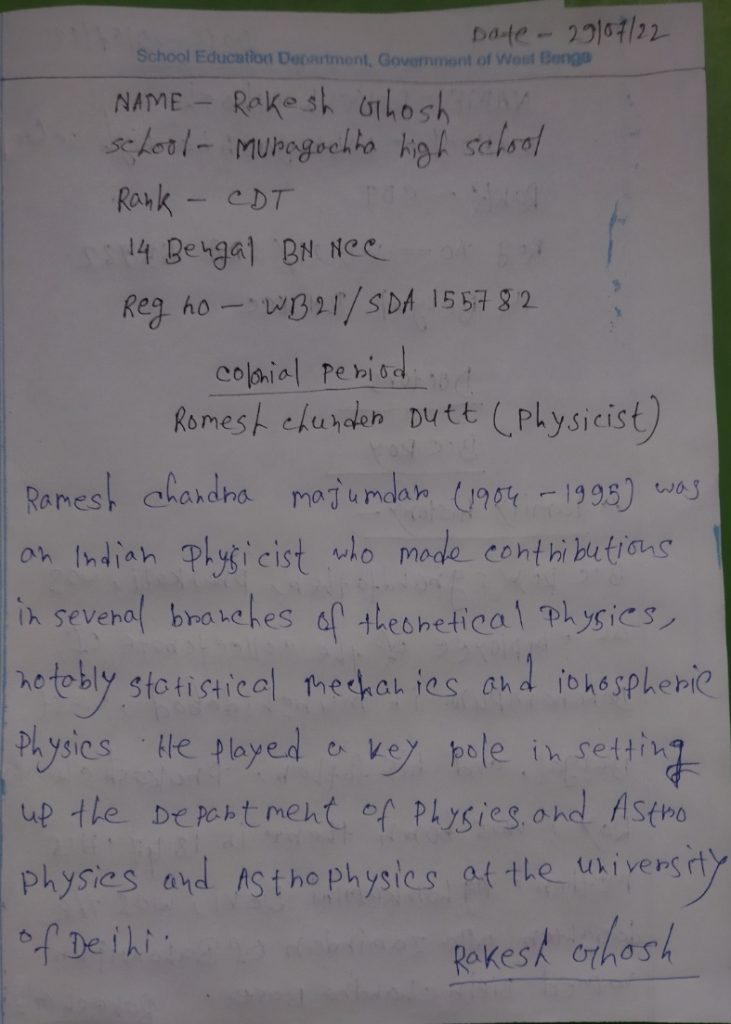 Date - 29/07/22
School Education Department, Government of West Benga
NAME - Rakesh Ghosh
school - Muragachha high school
Rank - CDT
14 Bengal BN NCC
Reg no - WB21/SDA 155782
colonial period
Romesh chunder Dutt (Physicist)
Ramesh chandra majumdar (1904 - 1995) was
an Indian Physicist who made contributions
in several branches of theoretical Physics,
notably statistical mechanics and ionospheric
Physics He played a key pole in setting
up the Department of Physics, and Astro
physics and Astrophysics at the university
of Deihi.
Rakesh Ghosh